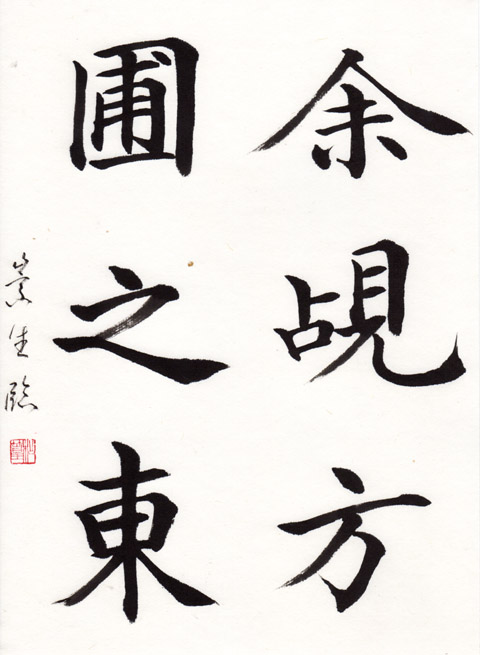 余覘方
圃之東
崇生臨